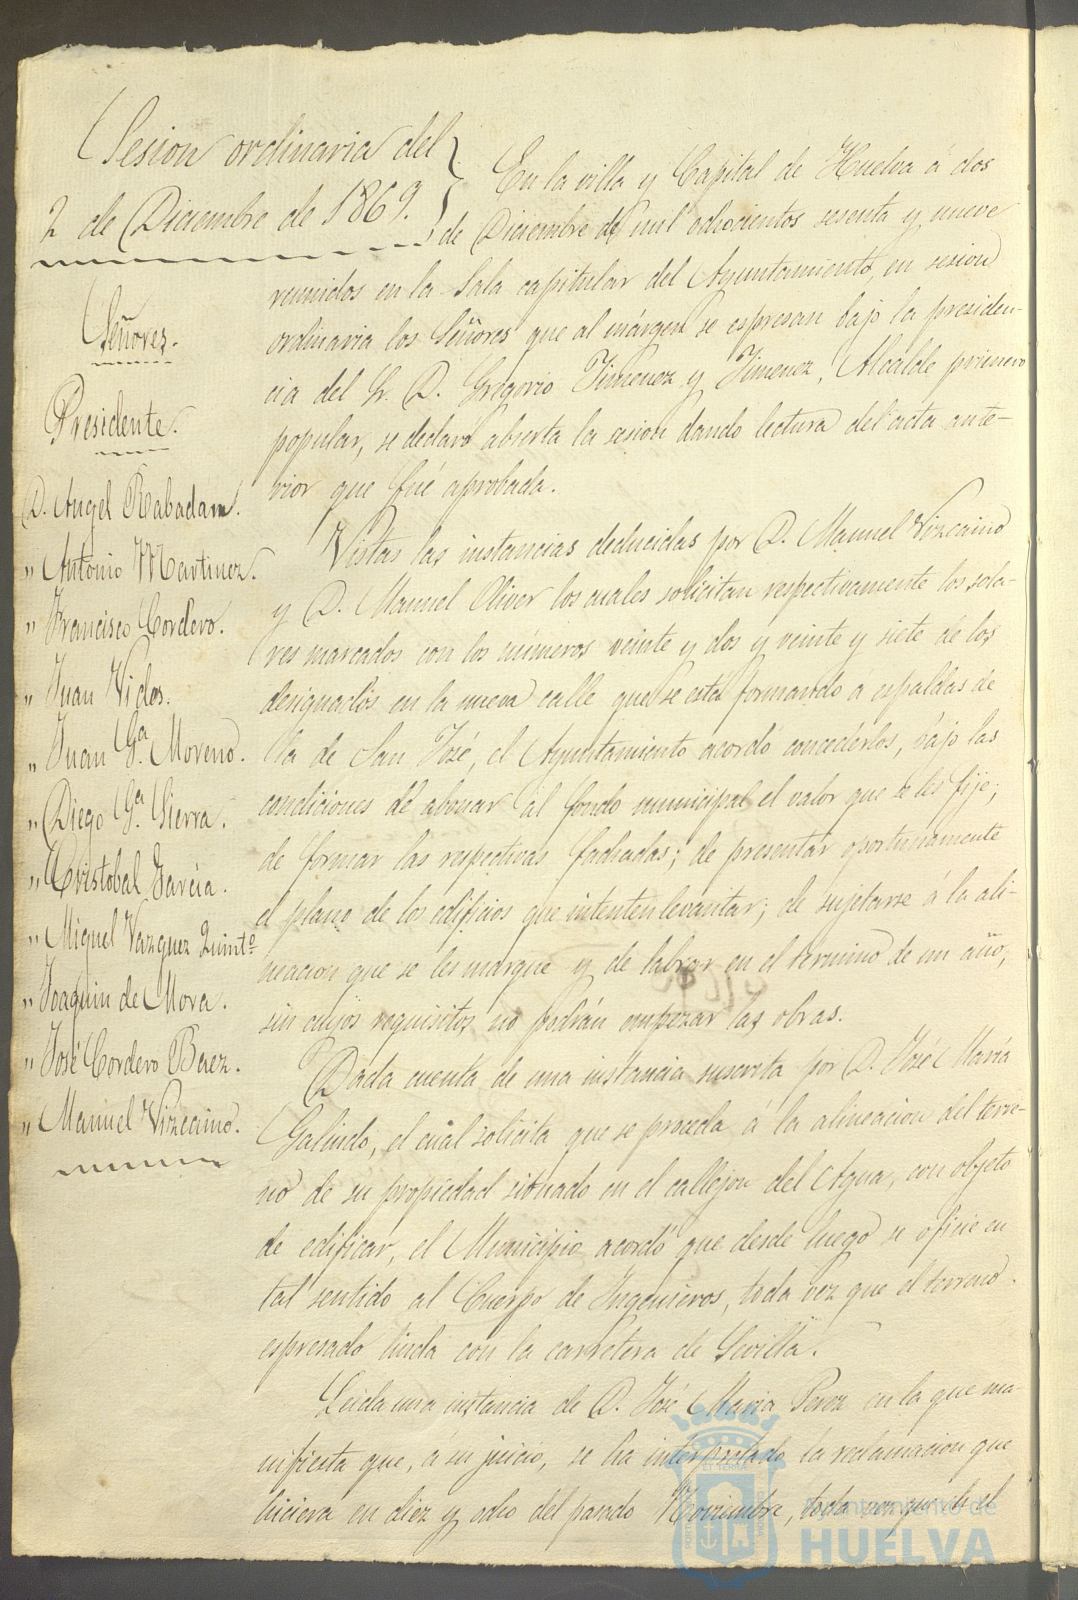 Sesion ordinaria del
2 de Diciembre de 1869.
Señores.
Presidente.
D. Angel Rabadan.
" Antonio Martinez.
" Francisco Cordero.
" Juan Vides.
" Juan Gª. Moreno.
" Diego Gª. Sierra.
" Cristobal Garcia.
" Miguel Vazquez Quintº
" Joaquin de Mora.
" José Cordero Baez.
" Manuel Vizcaino.
En la villa y Capital de Huelva á dos
de Diciembre de mil ochocientos sesenta y nueve
reunidos en la Sala capitular del Ayuntamiento, en sesion
ordinaria los Señores que al márgen se espresan bajo la presiden-
cia del Sr. D. Gregorio Jimenez y Jimenez, Alcalde primero
popular, se declaró abierta la sesion dando lectura del acta ante-
rior que fué aprobada.
Vistas las instancias deducidas por D. Manuel Vizcaino
y D. Manuel Oliver los cuales solicitan respectivamente los sola-
res marcados con los números veinte y dos y veinte y siete de los
designados en la nueva calle que se está formando á espaldas de
la de San José, el Ayuntamiento acordó concederlos, bajo las
condiciones de abonar al fondo municipal el valor que se les fije;
de formar las respectivas fachadas; de presentar oportunamente
el plano de los edificios que intenten levantar; de sujetarse á la ali-
neacion que se les marque y de labrar en el termino de un año,
sin cuyos requisitos no podrán empezar las obras.
Dada cuenta de una instancia suscrita por D. José Maria
Galindo, el cual solicita que se proceda á la alineacion del terre-
no de su propiedad situado en el callejon del Agua, con objeto
de edificar, el Municipio acordó que desde luego se oficie en
tal sentido al Cuerpo de Ingenieros, toda vez que el terreno
espresado linda con la carretera de Sevilla.
Leida una instancia de D. José Maria Perez en la que ma-
nifiesta que, á su juicio, se ha interpretado la reclamacion que
hiciera en diez y ocho del pasado Noviembre, toda vez que el
Ayuntamiento de
HUELVA